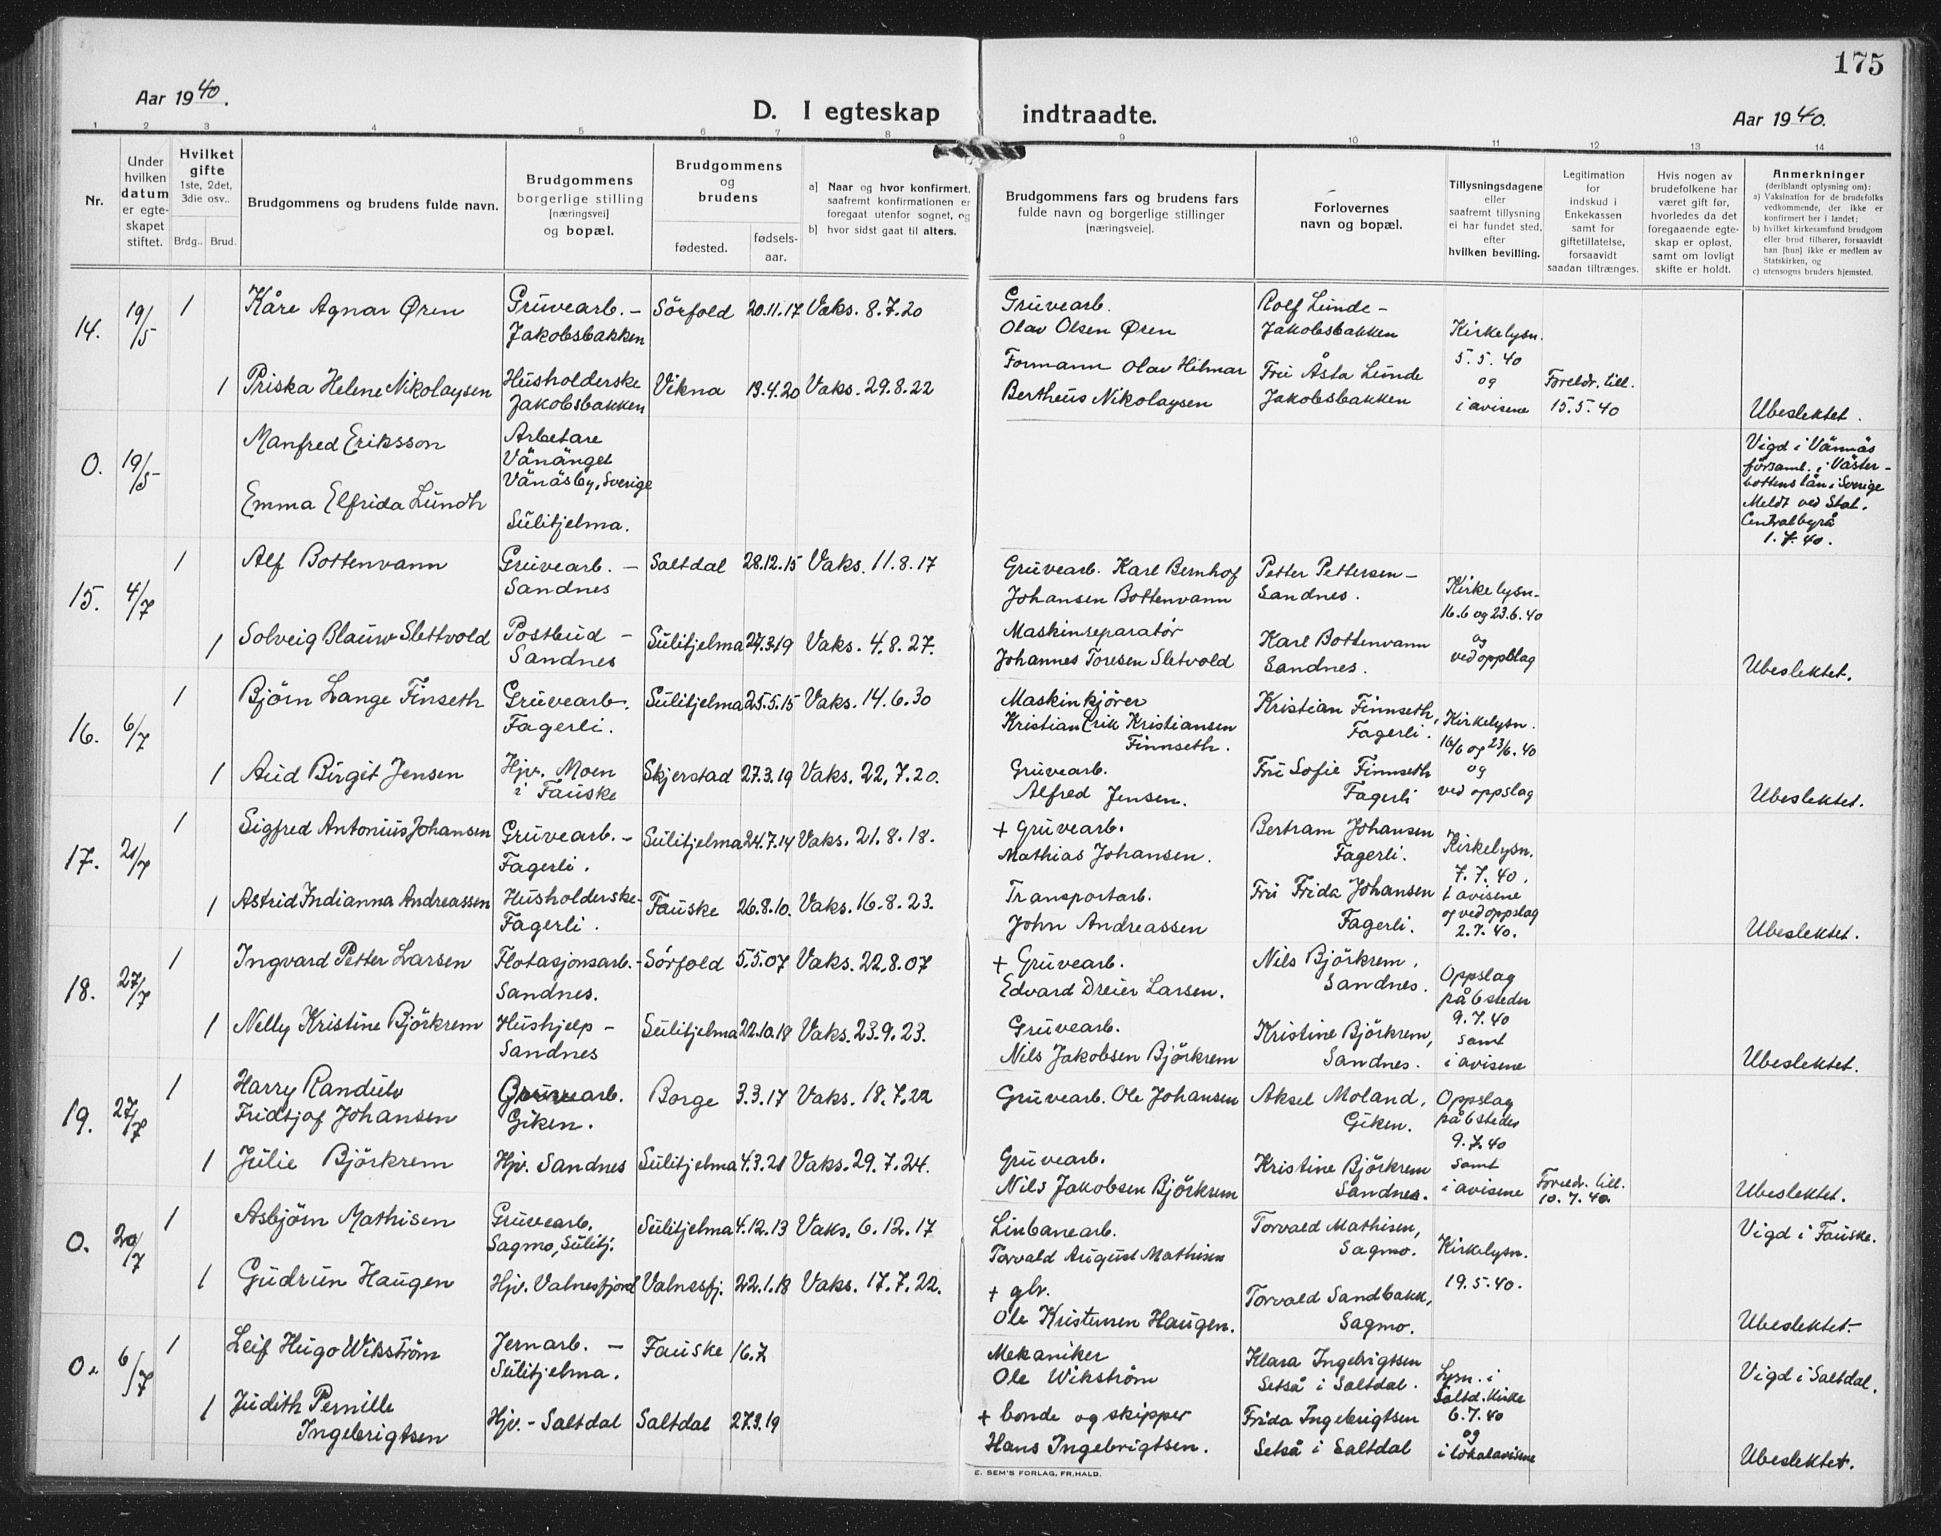 175
Aar 1940.
D. I egteskap indtraadte.
Aar 1940.
1 2 3 4 5 6 7 8 9 10 11 12 13 14
Nr.
Under
hvilken
datum
er egte-
skapet
stiftet.
Hvilket
gifte
1ste, 2det,
3die osv..
Brdg.. Brud.
Brudgommens og brudens fulde navn.
Brudgommens
borgerlige stilling
[næringsvei]
og bopæl.
Brudgommens
og
brudens
fødested.
fødsels-
aar.
a] Naar og hvor konfirmert,
saafremt konfirmationen er
foregaat utenfor sognet, og
b] hvor sidst gaat til alters.
Brudgommens fars og brudens fars
fulde navn og borgerlige stillinger
[næringsveie].
Forlovernes
navn og bopæl.
Tillysningsdagene
eller
saafremt tillysning
ei har fundet sted,
efter
hvilken bevilling.
Legitimation
for
indskud i
Enkekassen
samt for
giftetillatelse,
forsaavidt
saadan tiltrænges.
Hvis nogen av
brudefolkene har
været gift før,
hvorledes da det
foregaaende egte-
skap er opløst,
samt om lovligt
skifte er holdt.
Anmerkninger
(deriblandt oplysning om):
a) Vaksination for de brudefolks
vedkommende, der ikke er
konfirmert her i landet;
b) hvilket kirkesamfund brudgom
eller brud tilhører, forsaavidt
han [hun] ikke er medlem av
Statskirken, og
c) utensogns bruders hjemsted.
14. 19/5 1 Kåre Agnar Øren Gruvearb. – Sörfold 20.11.17 Vaks. 8.7.20 Gruvearb. Rolf Lunde –
Jakobsbakken Olav Olsen Øren Jakobsbakken Kirkelysn.
5.5.40
1 Priska Helene Nikolaysen Husholderske Vikna 13.4.20 Vaks. 29.8.22 Formann Olav Hilmar Fru Åsta Lunde og Foreldr. till.
Jakobsbakken Bertheus Nikolaysen Jakobsbakken i avisene 15.5.40 Ubeslektet.
0. 19/5 Manfred Eriksson Arbetare Vigd i Vännäs
Vänänget församl. i Väster-
Vänäsby, Sverige bottens län i Sverige
Emma Elfrida Lundh Sulitjelma. Meldt ved Stat.
Centralbyrå
1.7.40.
15. 4/7 1 Alf Bottenvann Gruvearb. – Saltdal 28.12.15 Vaks. 11.8.17 Gruvearb. Karl Bernhof Petter Pettersen –
Sandnes Johansen Bottenvann Sandnes. Kirkelysn.
16.6 og 23.6.40
1 Solveig Blauw Slettvold Postbud – Sulitjelma 27.3.19 Vaks. 4.8.27. Maskinseparatör Karl Bottenvann og
Sandnes Johannes Toresen Sletvold Sandnes. ved oppslag Ubeslektet.
16. 6/7 1 Björn Lange Finseth Gruvearb. Sulitjelma 25.5.15 Vaks. 14.6.30 Maskinkjörer Kristian Finnseth,
Fagerli. Kristian Erik Kristiansen Fagerli. Kirkelysn.
Finnseth. 16/6 og 23/6.40
1 Aud Birgit Jensen Hjv. Moen Skjerstad 27.3.19 Vaks. 22.7.20. Gruvearb. Fru Sofie Finnseth og
i Fauske Alfred Jensen. Fagerli ved oppslag Ubeslektet.
17. 21/7 1 Sigfred Antonius Johansen Gruvearb. – Sulitjelma 24.7.14 Vaks. 21.8.18. + gruvearb. Bertram Johansen
Fagerli. Mathias Johansen. Fagerli. Kirkelysn.
7.7.40.
1 Astrid Indianna Andreassen Husholderske – Fauske 26.8.10. Vaks. 16.8.23. Transportarb. Fru Frida Johansen i avisene
Fagerli. John Andreassen Fagerli. og ved oppslag
2.7.40. Ubeslektet.
18. 27/7 1 Ingvard Petter Larsen Flotasjonsarb. – Sörfold 5.5.07 Vaks. 22.8.07 + Gruvearb. Nils Björkrem,
Sandnes. Edvard Dreier Larsen. Sandnes. Oppslag
på 6 steder
9.7.40
1 Nelly Kristine Björkrem Hushjelp – Sulitjelma 22.10.18 Vaks. 23.9.23. Gruvearb. Kristine Björkrem, samt
Sandnes Nils Jakobsen Björkrem Sandnes. i avisene Ubeslektet.
19. 27/7 1 Harry Randulv Gruvearb. Borge 3.3.17 Vaks. 18.7.22 Gruvearb. Ole Johansen Aksel Moland, Oppslag
Fridtjof Johansen Giken. Giken. på 6 steder
9.7.40
1 Julie Björkrem Hjv. Sandnes Sulitjelma 4.3.21 Vaks. 29.7.24. Gruvearb. Kristine Björkrem samt Foreldr. till.
Nils Jakobsen Björkrem Sandnes. i avisene 10.7.40. Ubeslektet.
0. 20/7 1 Asbjörn Mathisen Gruvearb. Sulitjelma 4.12.13 Vaks. 6.12.17 Linbanearb. Torvald Mathisen, Vigd i Fauske.
Sagmo, Sulitj. Torvald August Mathisen Sagmo. Kirkelysn.
1 Gudrun Haugen Hjv. Valnesfjord Valnesfj. 22.1.18 Vaks. 17.7.22. + gbr. Torvald Sandbakk, 19.5.40.
Ole Kristensen Haugen. Sagmo. Ubeslektet.
0. 6/7 1 Leif Hugo Wikström Jernarb. – Fauske 16.7 Mekaniker Klara Ingebrigtsen
Sulitjelma. Ole Wikström Setså i Saltdal. Lysn. i Vigd i Saltdal.
Saltd. kirke
1 Judith Pernille Hjv. – Saltdal Saltdal 27.3.19 + bonde og skipper Frida Ingebrigtsen 6.7.40
Ingebrigtsen Hans Ingebrigtsen. Setså i Saltdal og
i lokalavisene Ubeslektet.
E. SEM'S FORLAG, FR.HALD.